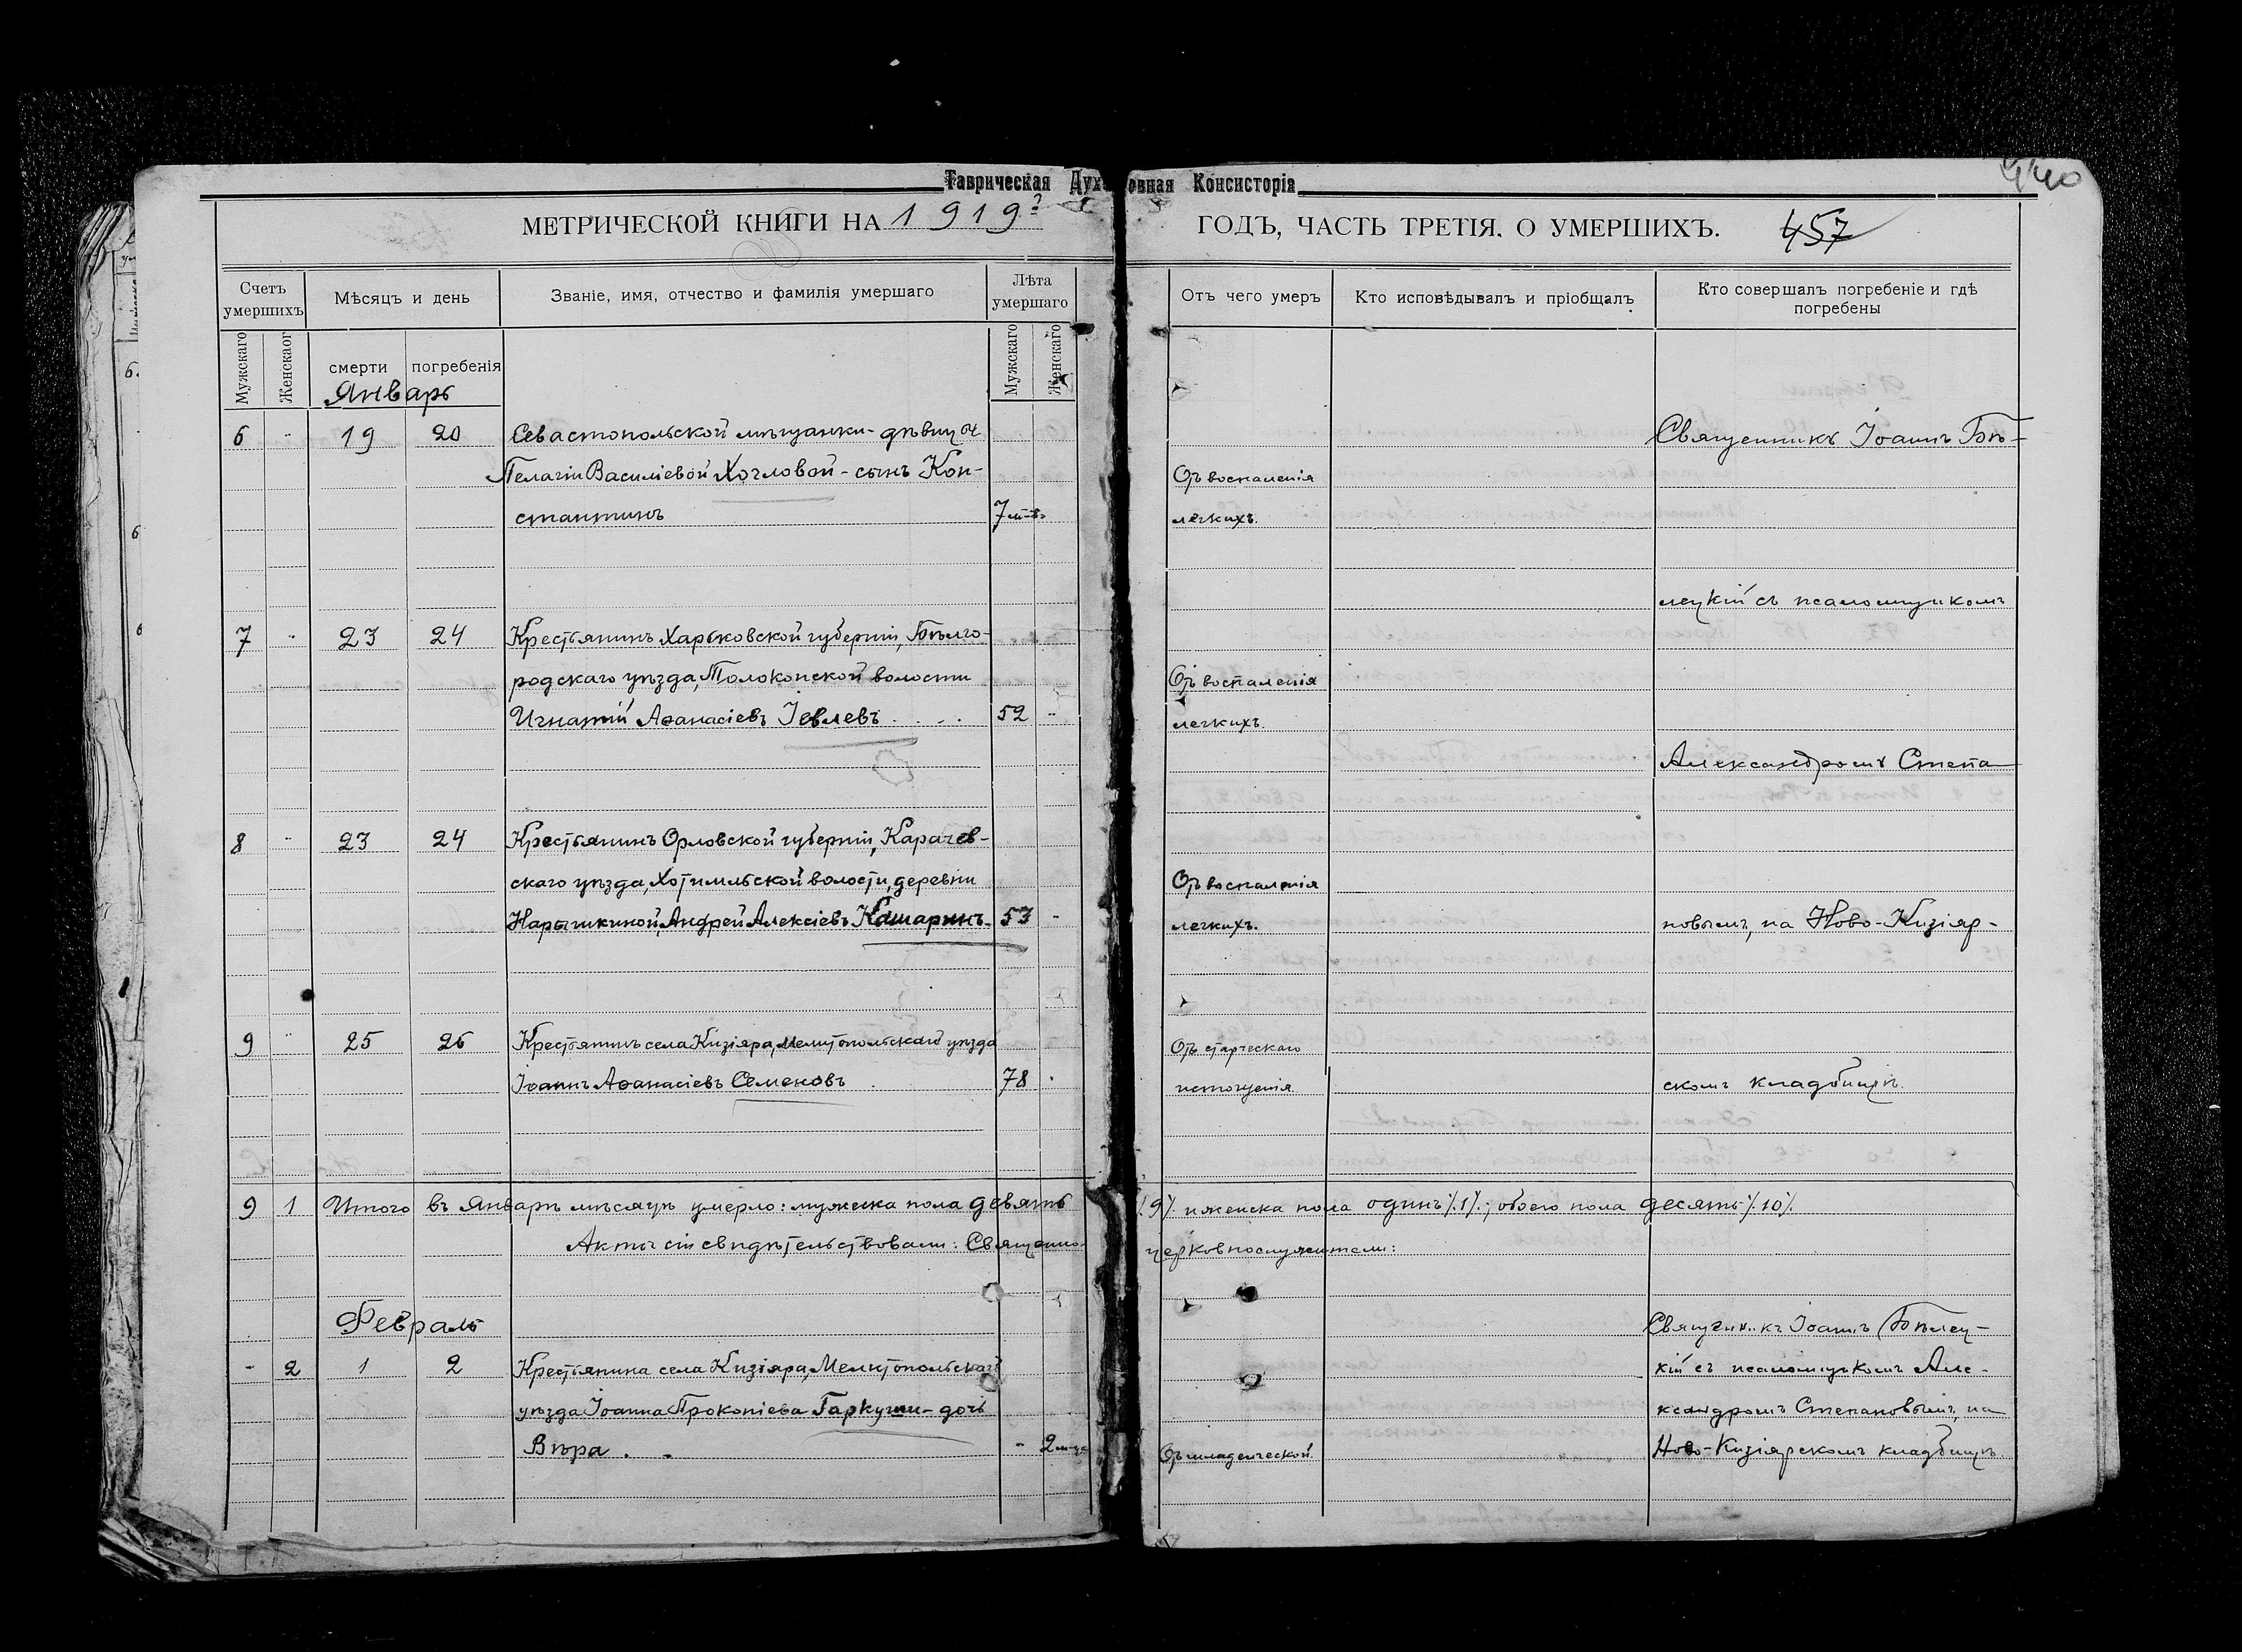 Таврическая Духовная Консисторія
440
МЕТРИЧЕСКОЙ КНИГИ НА 1919 ГОДЪ, ЧАСТЬ ТРЕТІЯ, О УМЕРШИХЪ. 457
Счетъ умершихъ
Мѣсяцъ и день
Званіе, имя, отчество и фамилія умершаго
Лѣта умершаго
Отъ чего умеръ
Кто исповѣдывалъ и пріобщалъ
Кто совершалъ погребеніе и гдѣ погребены
Мужскаго
Женскаог
смерти
погребенія
Мужскаго
Женскаго
Январь
6 " 19 20 Севастопольской мѣщанки-дѣвицы
Пелагіи Василіевой Хохловой - сынъ Кон-
стантинъ 7 м-въ
Отъ воспаленія
легкихъ.
Священникъ Іоаннъ Бѣ-
7 " 23 24 Крестьянинъ Харьковской губерніи, Бѣлго-
родскаго уѣзда, Толоконской волости
Игнатій Аѳанасіевъ Іевлевъ . . . . 52 "
Отъ воспаленія
легкихъ.
лецкій съ псаломщикомъ
Александромъ Степа-
8 " 23 24 Крестьянинъ Орловской губерніи, Карачев-
скаго уѣзда, Хотимльской волости, деревни
Нарышкиной, Андрей Алексіевъ Кашаринъ. 53 -
Отъ воспаленія
легкихъ.
новымъ, на Ново-Кизіяр-
9 " 25 26 Крестьянинъ села Кизіяра, Мелитопольскаго уѣзда
Іоаннъ Аѳанасіевъ Семеновъ . 78 .
Отъ старческаго
истощенія.
скомъ кладбищѣ.
9 1 Итого въ Январѣ мѣсяцѣ умерло: мужеска пола девять /.9/. и женска пола одинъ /.1/.; обоего пола десять /.10/.
Акты сіи свидѣтельствовали: Священно-
церковнослужители:
Февраль
- 2 1 2 Крестьянина села Кизіяра, Мелитопольскаго
уѣзда Іоанна Прокопіева Гаркуши - дочь
Вѣра . . - 2 м-ца
Отъ младенческой
Священникъ Іоаннъ Бѣлец-
кій съ псаломщикомъ Але-
ксандромъ Степановымъ, на
Ново-Кизіярскомъ кладбищѣ.